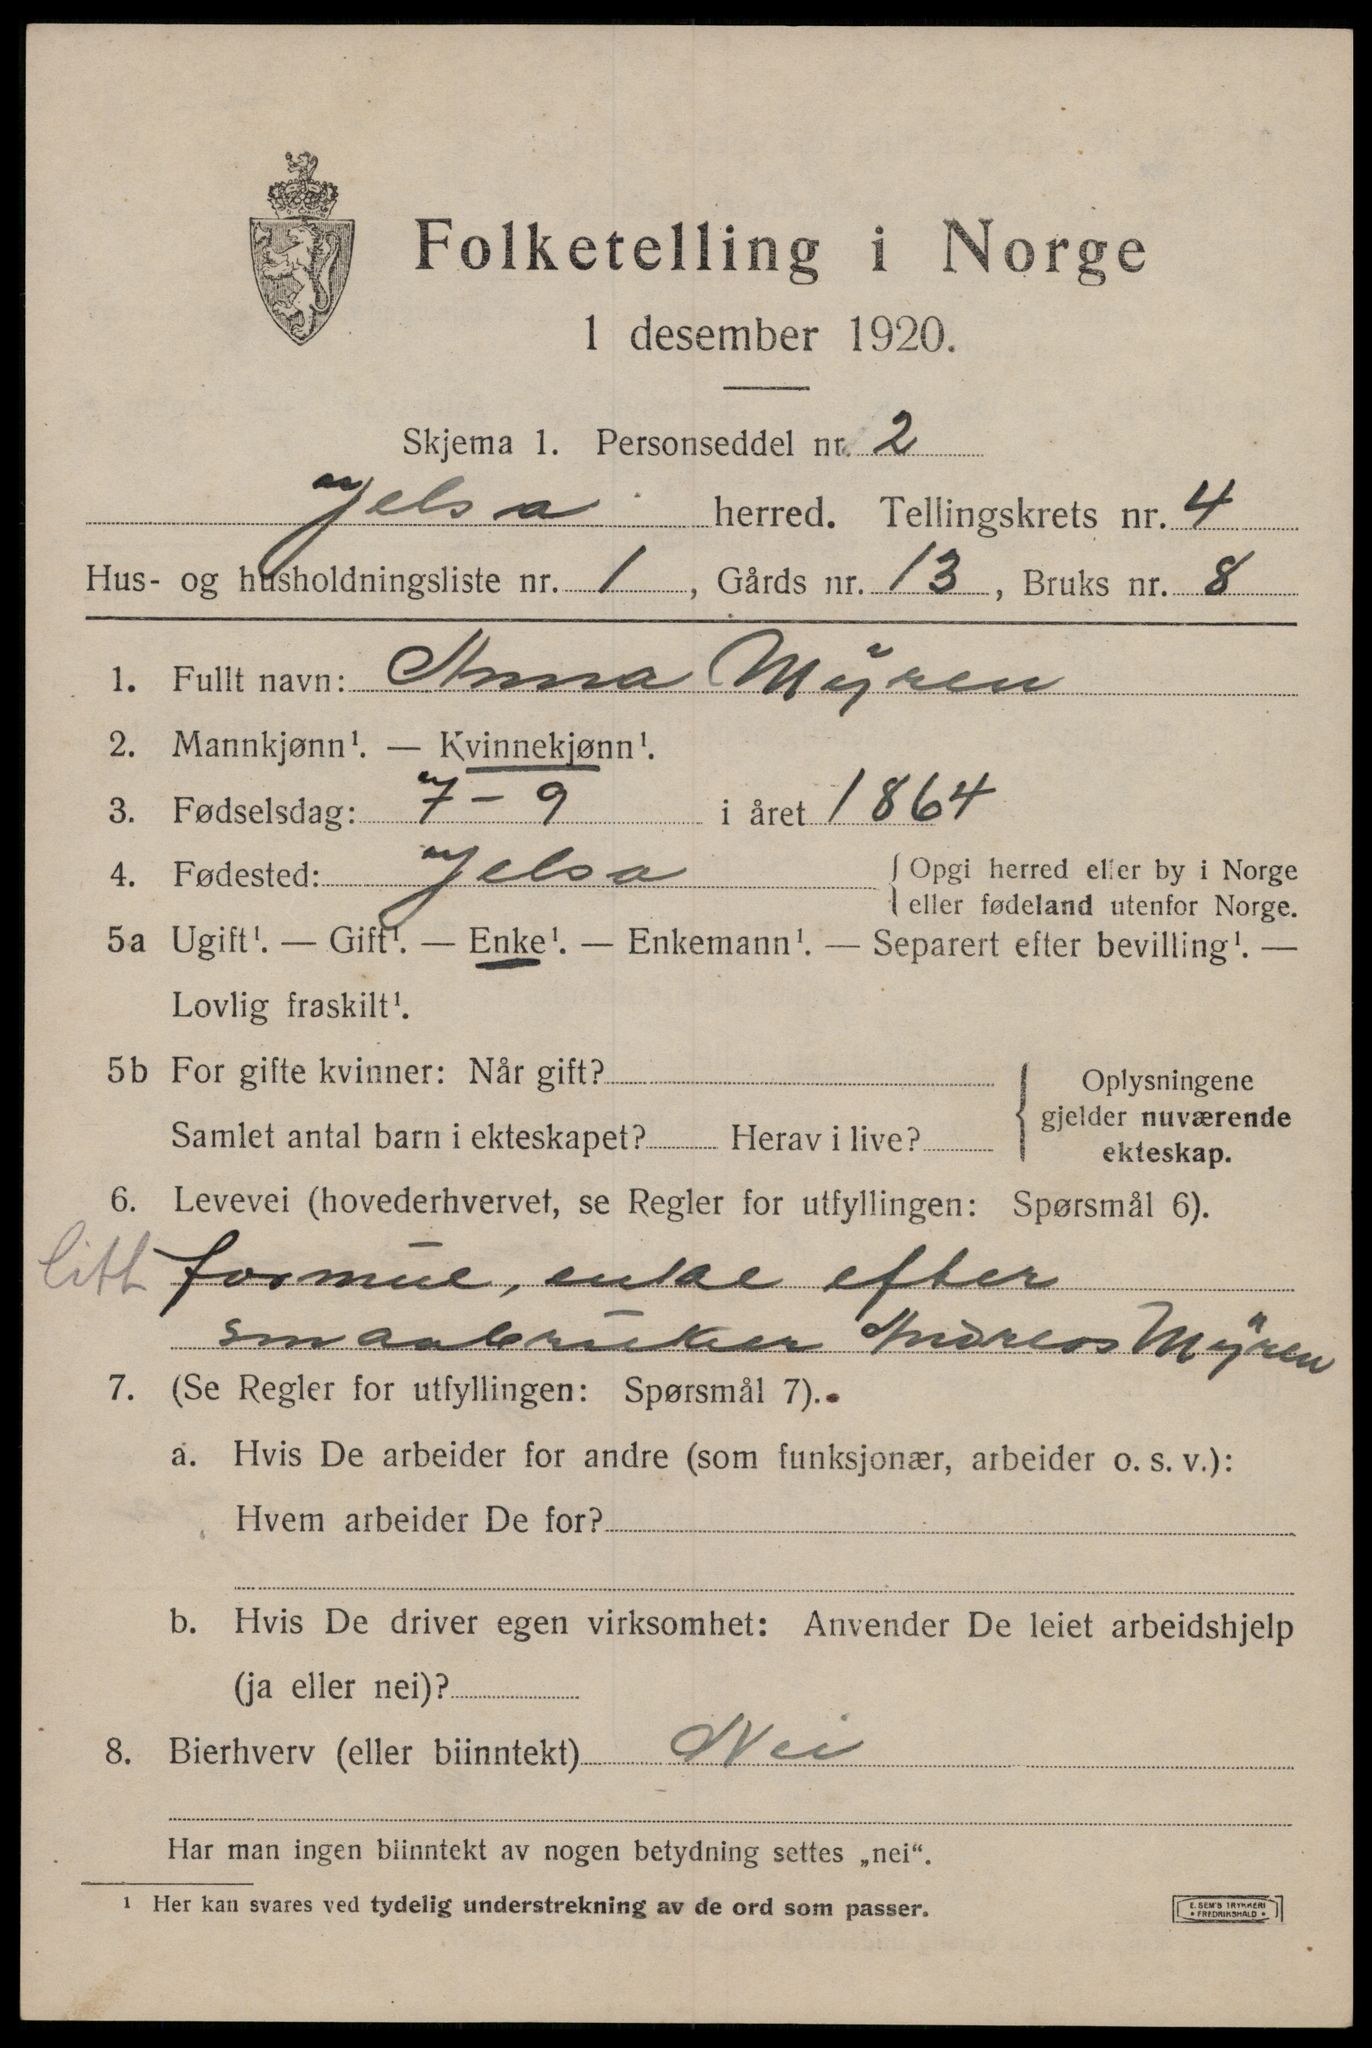 Folketelling i Norge
1 desember 1920.
Skjema 1. Personseddel nr. 2
Jelsa herred. Tellingskrets nr. 4
Hus- og husholdningsliste nr. 1, Gårds nr. 13, Bruks nr. 8
1. Fullt navn: Anna Myren
2. Mannkjønn¹. — Kvinnekjønn¹.
3. Fødselsdag: 7 - 9 i året 1864
4. Fødested: Jelsa { Opgi herred eller by i Norge
eller fødeland utenfor Norge.
5a Ugift¹. — Gift¹. — Enke¹. — Enkemann¹. — Separert efter bevilling¹. —
Lovlig fraskilt¹.
5b For gifte kvinner: Når gift?
Samlet antal barn i ekteskapet? Herav i live?
{ Oplysningene
gjelder nuværende
ekteskap.
6. Levevei (hovederhvervet, se Regler for utfyllingen: Spørsmål 6).
litt formue, enke efter
smaabruker Andreas Myren
7. (Se Regler for utfyllingen: Spørsmål 7).
a. Hvis De arbeider for andre (som funksjonær, arbeider o. s. v.):
Hvem arbeider De for?
b. Hvis De driver egen virksomhet: Anvender De leiet arbeidshjelp
(ja eller nei)?
8. Bierhverv (eller biinntekt) Nei
Har man ingen biinntekt av nogen betydning settes „nei“.
¹ Her kan svares ved tydelig understrekning av de ord som passer.
E. SEM'S TRYKKERI
• FREDRIKSHALD •